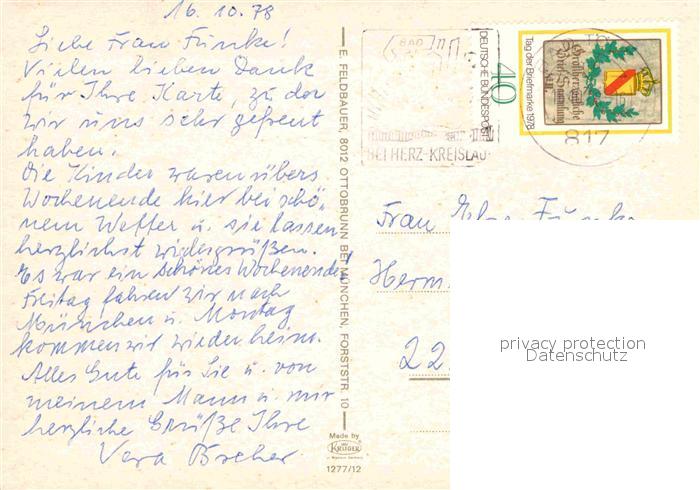 16.10.78
Liebe Frau Funke!
Vielen lieben Dank
für Ihre Karte, zu der
wir uns sehr gefreut
haben.
Die Kinder waren übers
Wochenende hier bei schö-
nem Wetter u. sie lassen
herzlichst widergrüßen.
Es war ein schönes Wochenende!
Freitag fahren wir nach
München u. Montag
kommen wir wieder heim.
Alles Gute für Sie u. von
meinem Mann u. mir
herzliche Grüße Ihre
Vera
E. FELDBAUER, 8012 OTTOBRUNN BEI MÜNCHEN, FORSTSTR. 10
Made by
KRÜGER
1277/12
BAD
BEI HERZ-KREISLAUF
DEUTSCHE BUNDESPOST
40
Tag der Briefmarke 1978
817
Frau
Herm
22
privacy protection
Datenschutz